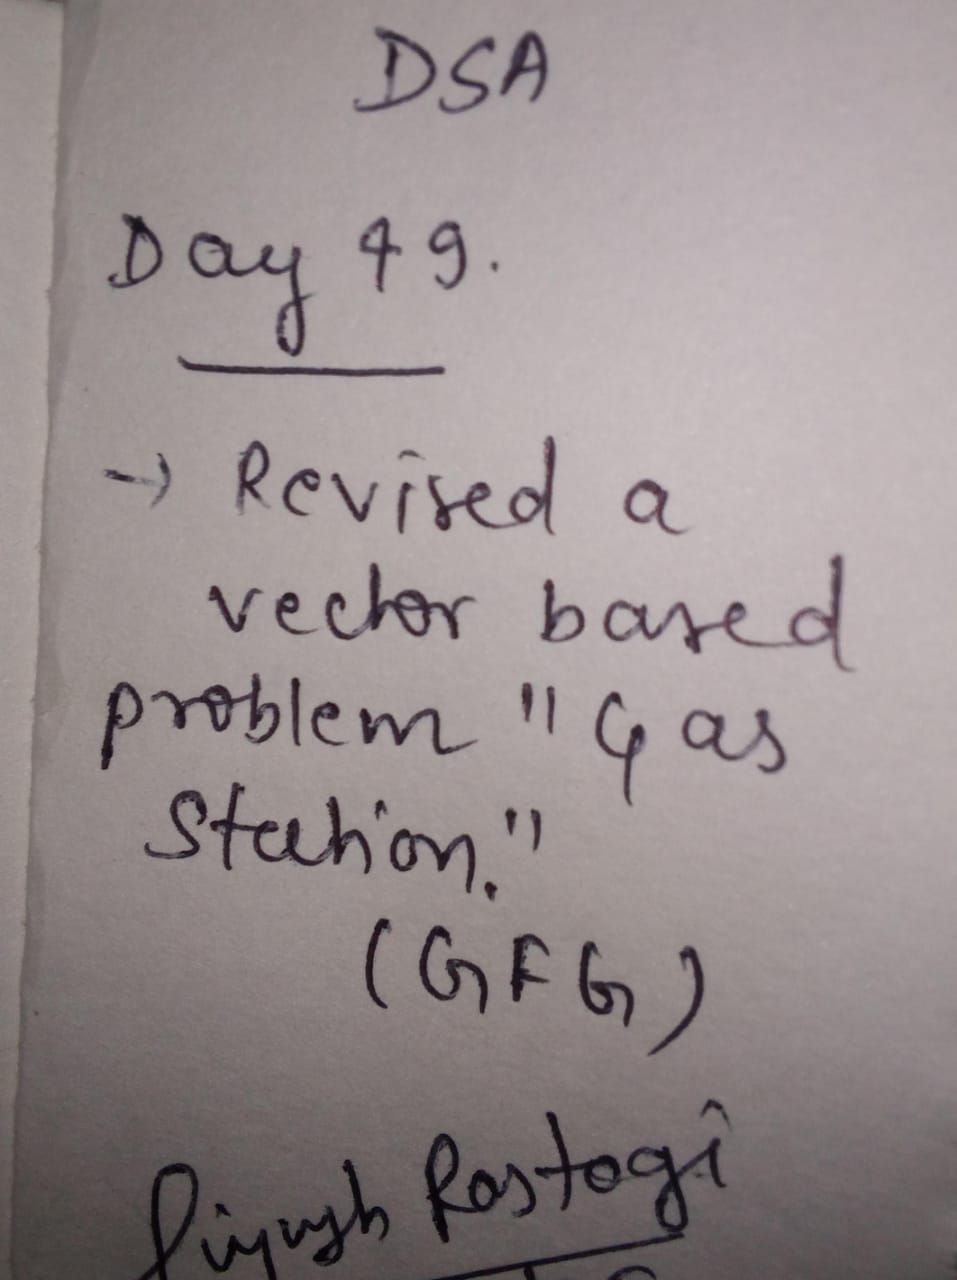 DSA
Day 49.
→ Revised a
vector based
problem "Gas
Station."
(GFG)
Piyush Rastogi